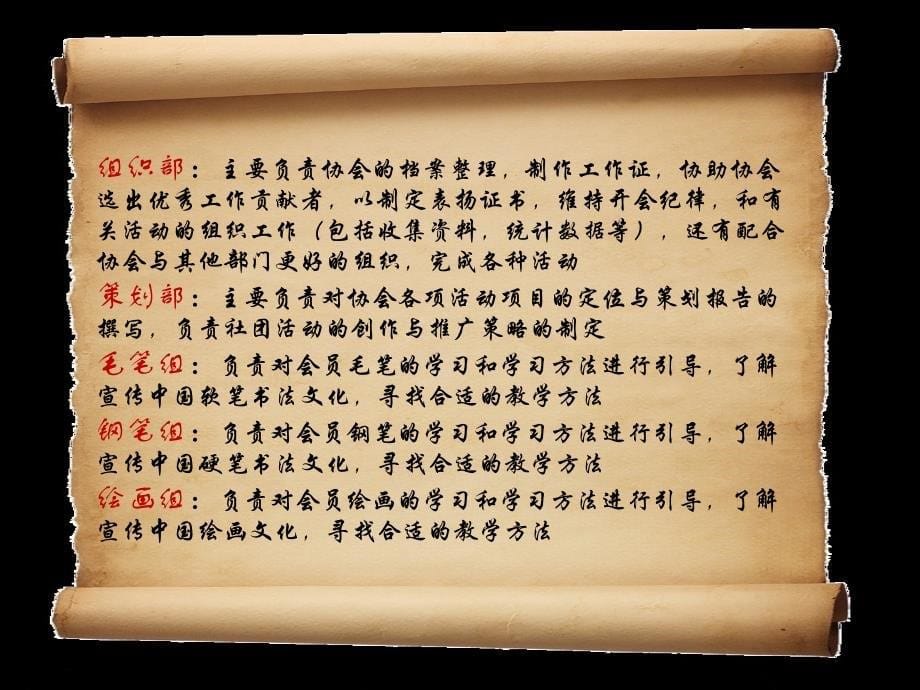 组织部：主要负责协会的档案整理，制作工作证，协助协会
选出优秀工作贡献者，以制定表扬证书，维持开会纪律，和有
关活动的组织工作（包括收集资料，统计数据等），还有配合
协会与其他部门更好的组织，完成各种活动
策划部：主要负责对协会各项活动项目的定位与策划报告的
撰写，负责社团活动的创作与推广策略的制定
毛笔组：负责对会员毛笔的学习和学习方法进行引导，了解
宣传中国软笔书法文化，寻找合适的教学方法
钢笔组：负责对会员钢笔的学习和学习方法进行引导，了解
宣传中国硬笔书法文化，寻找合适的教学方法
绘画组：负责对会员绘画的学习和学习方法进行引导，了解
宣传中国绘画文化，寻找合适的教学方法